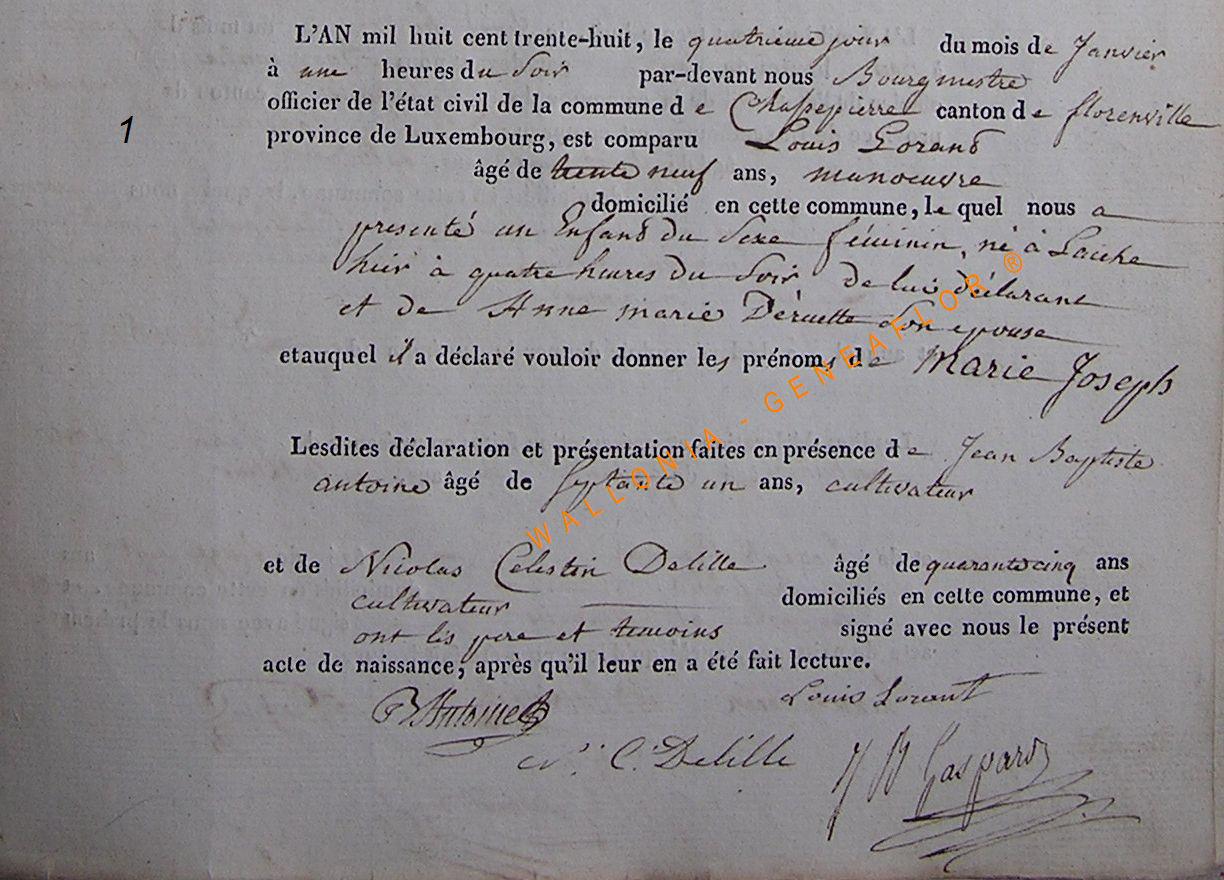 L'AN mil huit cent trente-huit, le quatrieme jour du mois de Janvier
à une heures du Soir par-devant nous Bourgmestre
officier de l'état civil de la commune de Chassepierre canton de florenville
1
province de Luxembourg, est comparu Louis Lorand
âgé de trente neuf ans, manoeuvre
domicilié en cette commune, le quel nous a
presenté un Enfand du Sexe féminin, né à Laiche
hier à quatre heures du Soir de lui déclarant
et de Anne marie Son epouse
et auquel il a déclaré vouloir donner les prénoms de Marie Joseph
Lesdites déclaration et présentation faites en présence de Jean Baptiste
antoine âgé de Septante un ans, cultivateur
et de Nicolas Celestin Delille âgé de quarante cinq ans
cultivateur domiciliés en cette commune, et
ont les pere et temoins signé avec nous le présent
acte de naissance, après qu'il leur en a été fait lecture.
Louis Lorant
Antoine
N. C. Delille
J B Gaspard
WALLONIA - GENEAFLOR ®